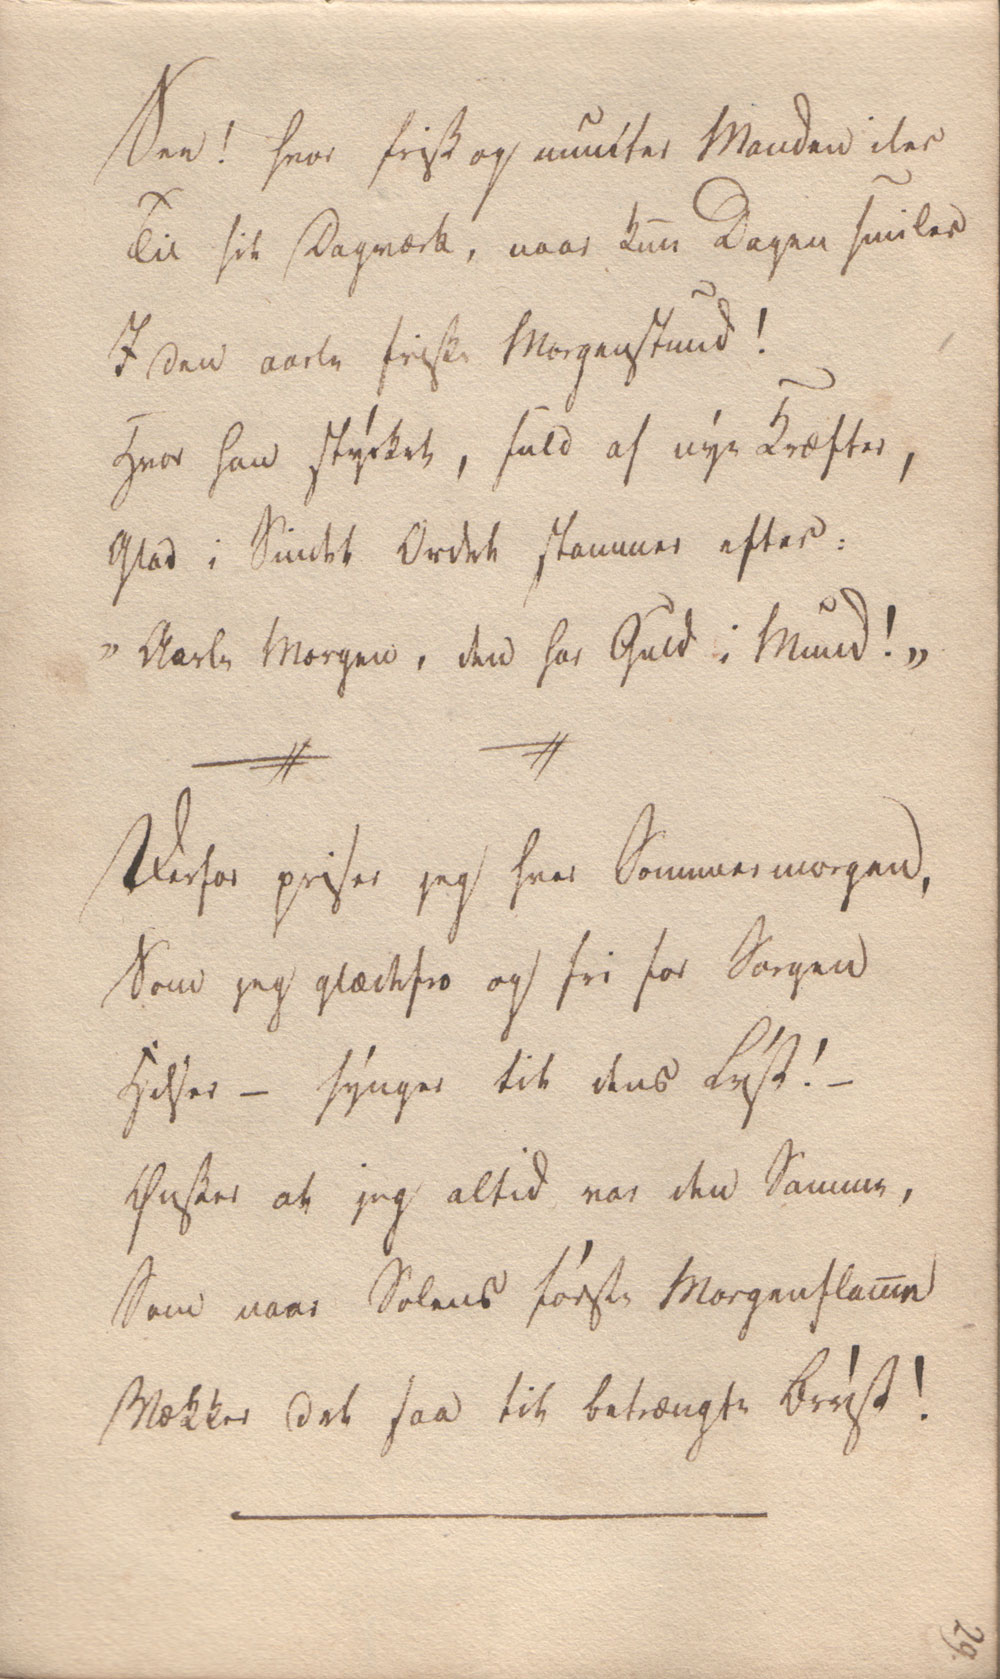 See! hvor frisk og munter Manden iler
Til sit Dagværk, naar kun Dagen smiler
I den aarle friske Morgenstund!
Hvor han styrket, fuld af nye Kræfter,
Glad i Sindet Ordet stammer efter:
"Aarle Morgen, den har Guld i Mund!"
Derfor priser jeg hver Sommermorgen,
Som jeg glædesfro og fri for Sorgen
Hilser – synger tit dens Lyst! –
Ønsker at jeg altid var den Samme,
Som naar Solens første Morgenflamme
Vækker det saa tit betrængte Bryst!
29.